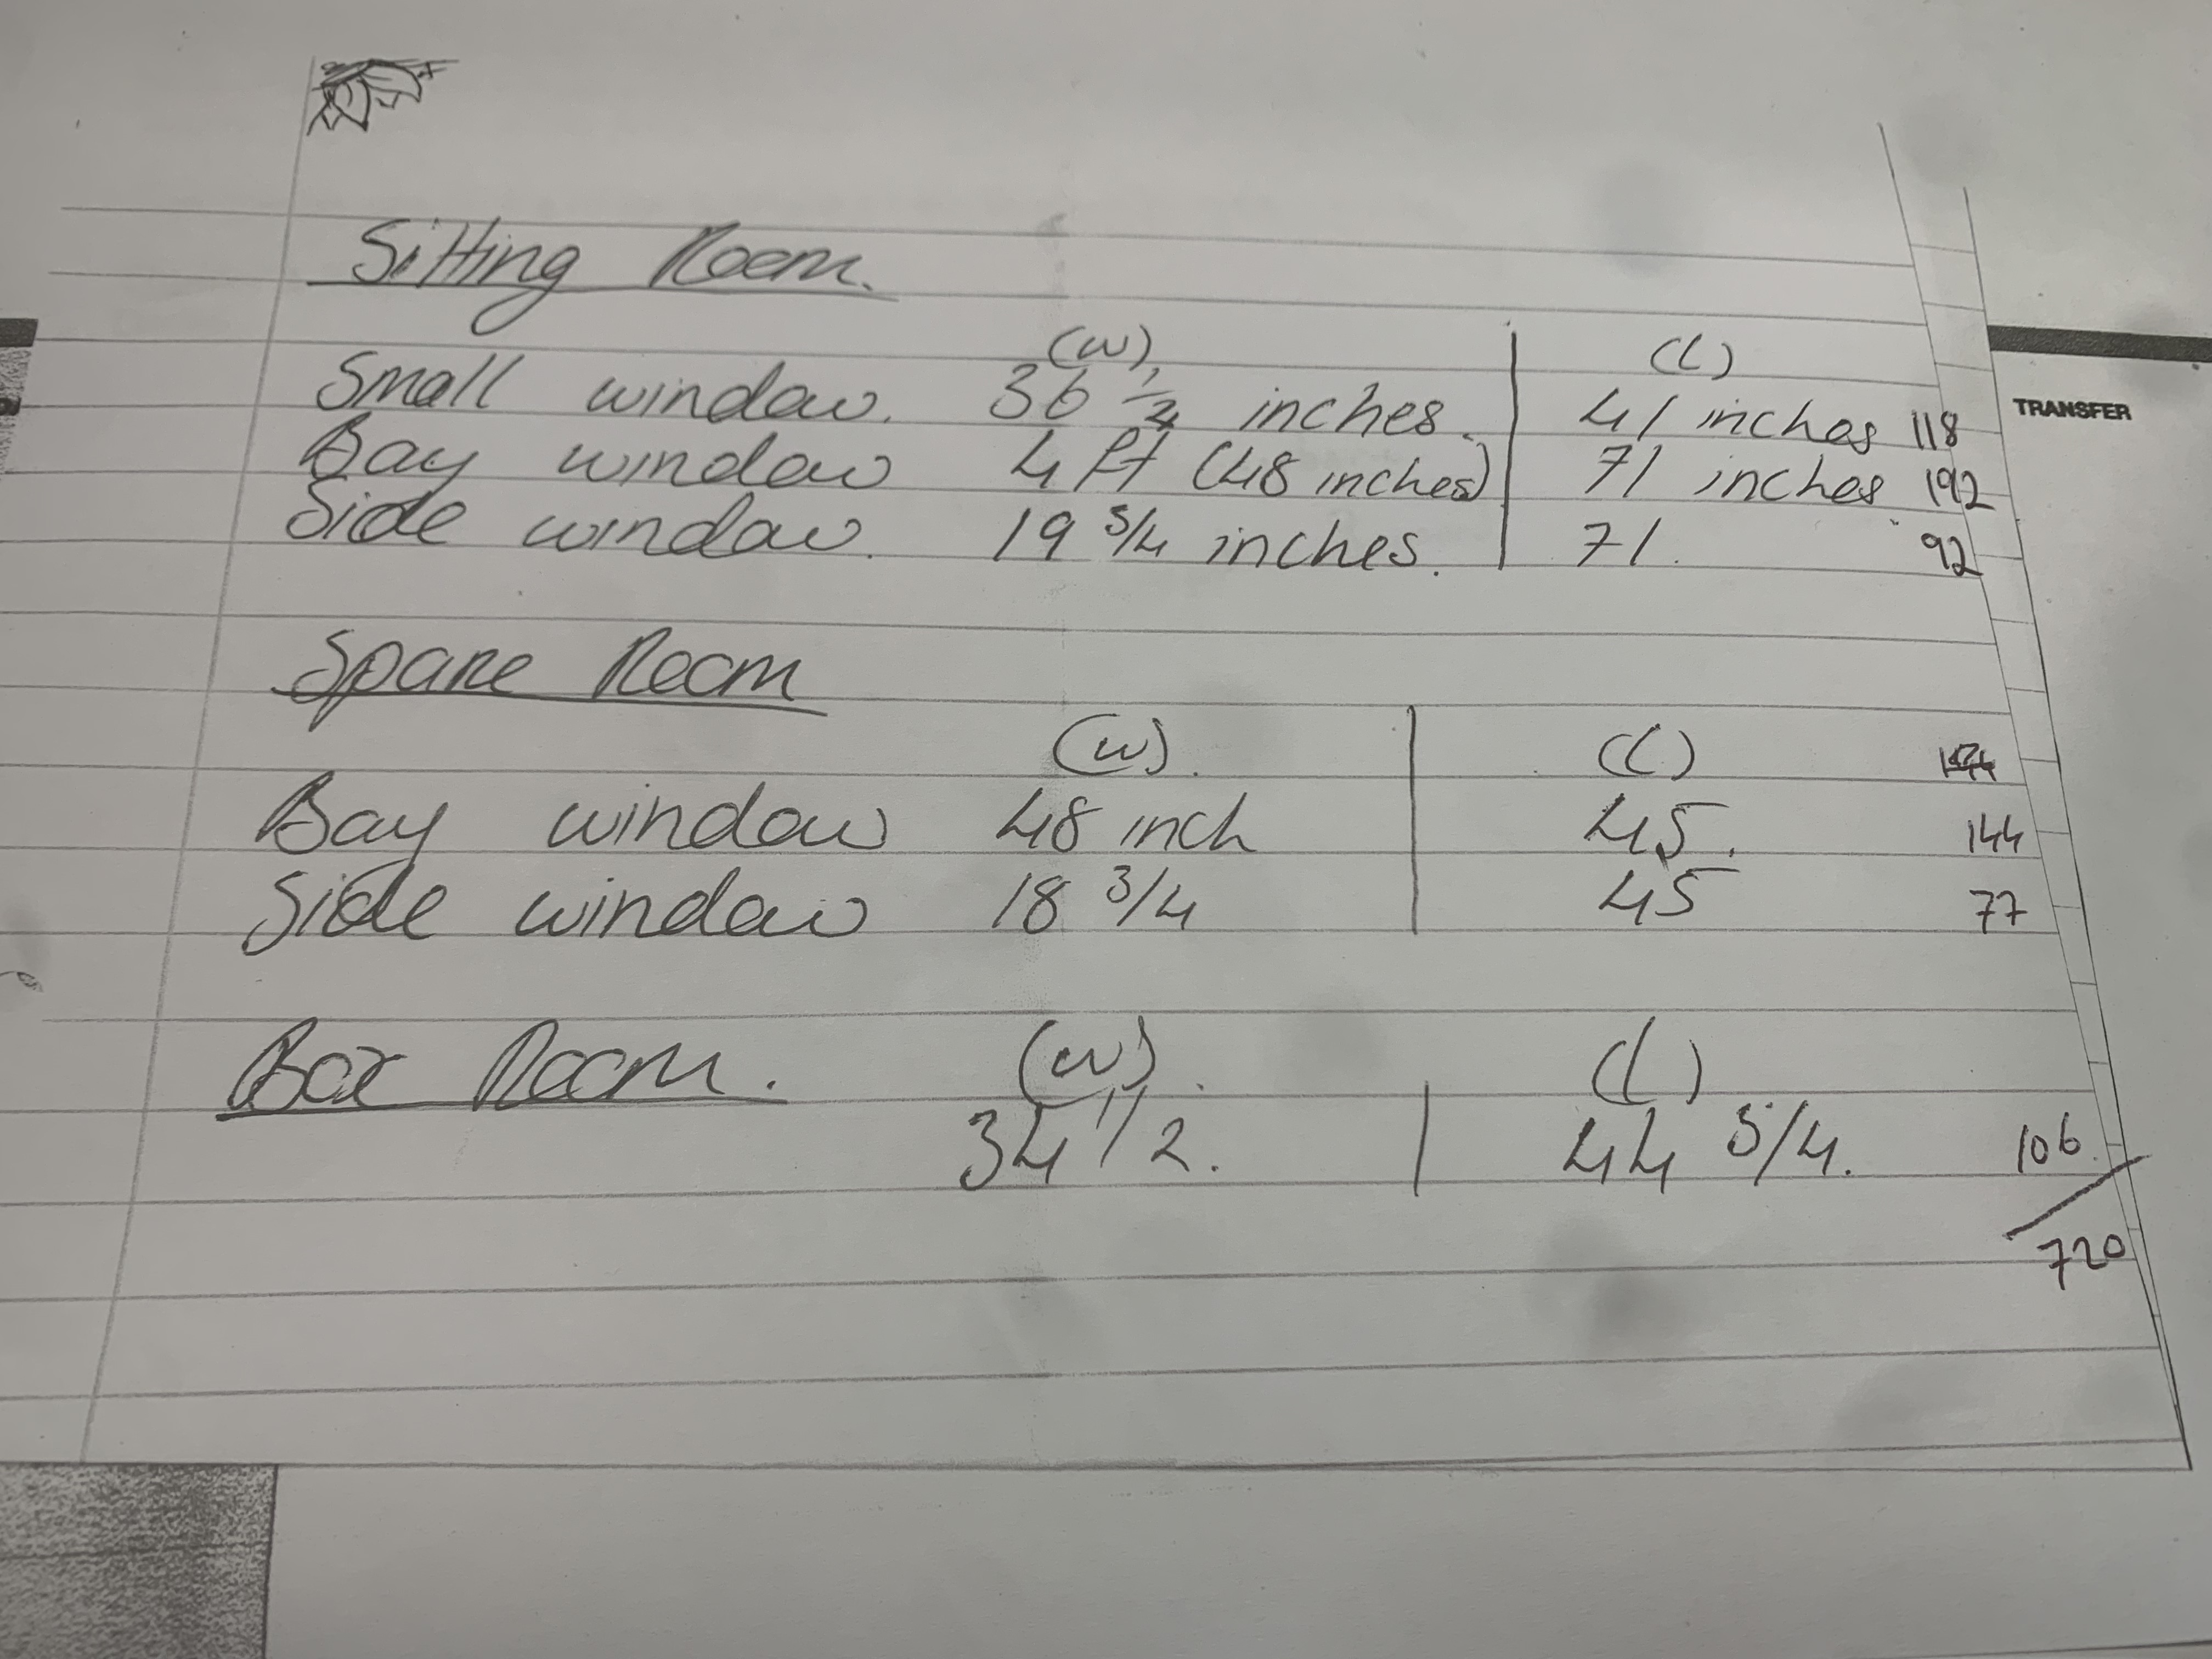 Sitting Room.
(W) (L)
Small window. 36 1/2 inches. 41 inches 118
TRANSFER
Bay window 4 ft (48 inches) 71 inches 192
Side window. 19 3/4 inches. 71. 92
Spare Room
(W). (L)
Bay window 48 inch 45. 144
Side window 18 3/4 45 77
Box Room. (W). (L)
34 1/2. 44 3/4. 106
720